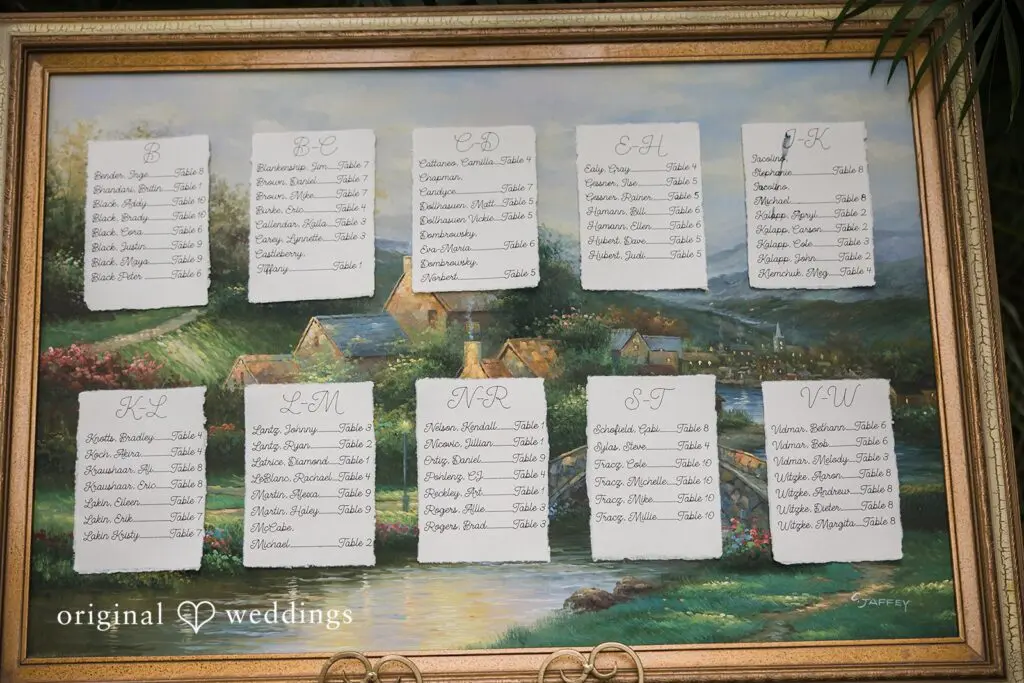 B
Bender, Inge Table 8
Bhandari, Britin Table 1
Black, Addy Table 10
Black, Brady Table 10
Black, Cora Table 6
Black, Justin Table 9
Black, Maya Table 9
Black Peter Table 6
B-C
Blankenship, Jim Table 7
Brown, Daniel Table 7
Brown, Mike Table 7
Burke, Eric Table 4
Callendar, Kaila Table 3
Carey, Lynnette Table 3
Castleberry,
Tiffany Table 1
C-D
Cattaneo, Camilla Table 4
Chapman,
Candyce Table 7
Dollhausen, Matt Table 5
Dollhausen Vickie Table 5
Dombrowsky,
Eva-Maria Table 6
Dombrowsky,
Norbert Table 5
E-H
Ealy, Gray Table 4
Gessner, Ilse Table 5
Gessner, Rainer Table 5
Hamann, Bill Table 6
Hamann, Ellen Table 6
Hubert, Dave Table 5
Hubert, Judi Table 5
J-K
Jacolino,
Stephanie Table 8
Jacolino,
Michael Table 8
Kalapp, Apryl Table 2
Kalapp, Carson Table 2
Kalapp, Cole Table 3
Kalapp, John Table 2
Klemchuk, Meg Table 4
K-L
Knotts, Bradley Table 4
Koch, Akira Table 4
Kraushaar, Aji Table 8
Kraushaar, Eric Table 8
Lakin, Eileen Table 7
Lakin, Erik Table 7
Lakin Kristy Table 7
L-M
Lantz, Johnny Table 3
Lantz, Ryan Table 2
Latrice, Diamond Table 1
LeBlanc, Rachael Table 4
Martin, Alexa Table 9
Martin, Haley Table 9
McCabe,
Michael Table 2
N-R
Nelson, Kendall Table 1
Nicovic, Jillian Table 1
Ortiz, Daniel Table 9
Ponlenz, CJ Table 4
Reckley, Art Table 1
Rogers, Allie Table 3
Rogers, Brad Table 3
S-T
Schofield, Gabi Table 8
Sylas, Steve Table 4
Tracz, Cole Table 10
Tracz, Michelle Table 10
Tracz, Mike Table 10
Tracz, Millie Table 10
V-W
Vidmar, Bethann Table 6
Vidmar, Bob Table 6
Vidmar, Melody Table 3
Witzke, Aaron Table 8
Witzke, Andrew Table 8
Witzke, Dieter Table 8
Witzke, Margita Table 8
JAFFEY
original weddings